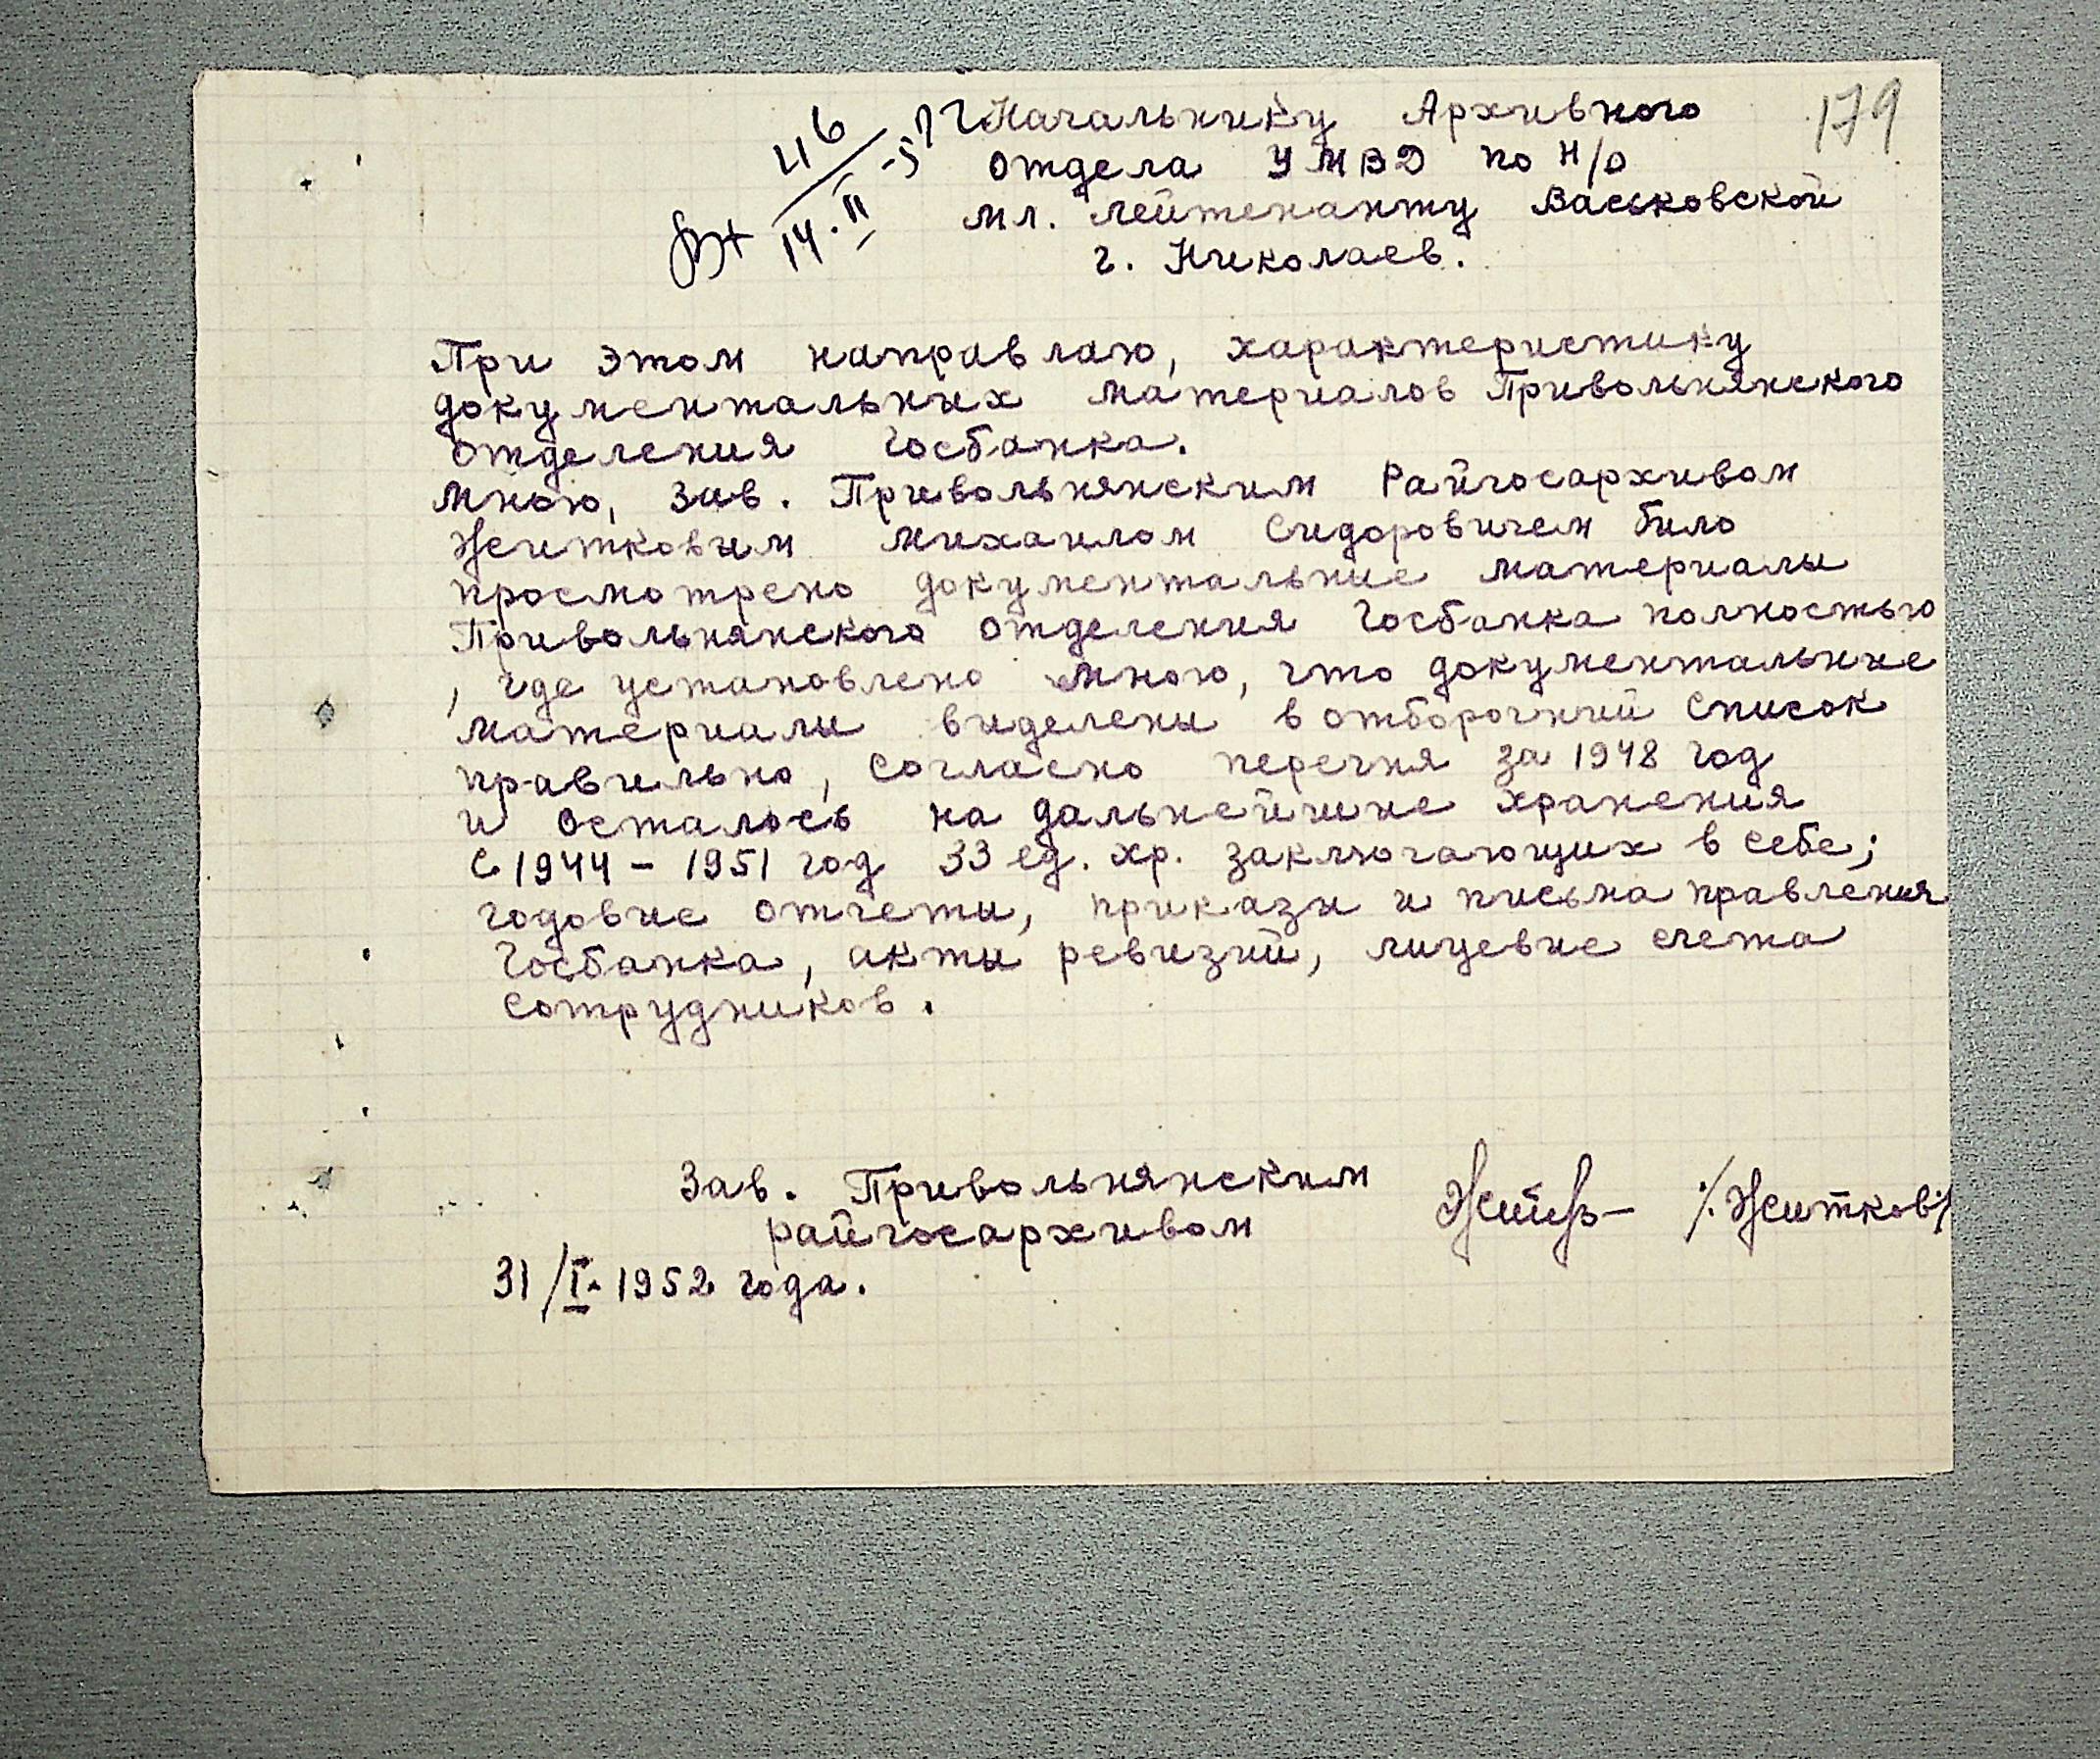 179
Вх 416
14.II-52 г
Начальнику Архивного
отдела УМВД по Н/О
мл. лейтенанту Васьковской
г. Николаев.
При этом направлаю, характеристику
документальних материалов Привольнянского
отделения Госбанка.
Мною, Зав. Привольнянским Райгосархивом
Житковим Михаилом Сидоровичем било
просмотрено документальние материалы
Привольнянского отделения Госбанка полностью
, где установлено мною, что документальние
материалы виделены в отборочний список
правильно, согласно перечня за 1948 год
и осталось на дальнейшие хранения
с 1944 - 1951 год 33 ед. хр. заключающих в себе;
годовие отчеты, приказы и письма правления
Госбанка, акты ревизий, лицевие счета
сотрудников.
Зав. Привольнянским
райгосархивом /Житков/
31/I-1952 года.